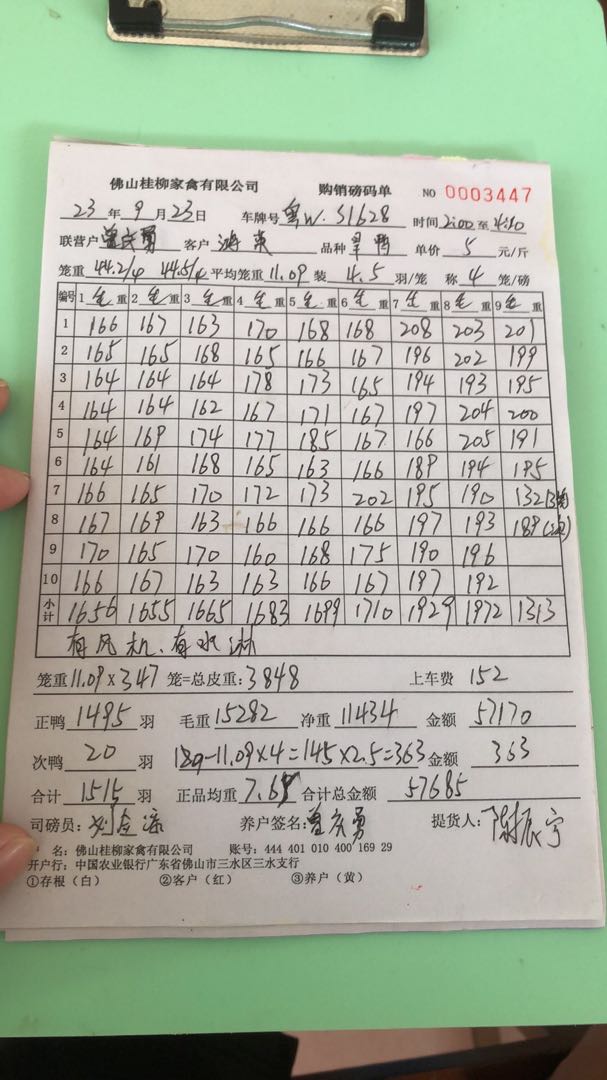 佛山桂柳家禽有限公司 购销磅码单 NO 0003447
23 年 9 月 23 日 车牌号 粤W.S1628 时间 2:00 至 4:10
联营户 曾庆勇 客户 品种 鸭 单价 5 元/斤
笼重 44.2/4 44.5/4 平均笼重 11.09 装 4.5 羽/笼 称 4 笼/磅
编号 1 毛重 2 毛重 3 毛重 4 毛重 5 毛重 6 毛重 7 毛重 8 毛重 9 毛重
1 166 167 163 170 168 168 208 203 201
2 165 165 168 165 166 167 196 202 199
3 164 164 164 178 173 165 194 193 195
4 164 164 162 167 171 167 197 204 200
5 164 169 174 177 185 167 166 205 191
6 164 161 168 165 163 166 189 194 195
7 166 165 170 172 173 202 195 190 132
8 167 169 163 166 166 166 197 193 189
9 170 165 170 160 168 175 190 196
10 166 167 163 163 166 167 197 192
小计 1656 1655 1665 1683 1699 1710 1929 1972 1313
有风机、有水淋
笼重 11.09 × 347 笼=总皮重: 3848 上车费 152
正鸭 1495 羽 毛重 15282 净重 11434 金额 57170
次鸭 20 羽 189-11.09×4=145×2.5=363 金额 363
合计 1515 羽 正品均重 7.65 合计总金额 57685
司磅员: 养户签名: 曾庆勇 提货人: 陈振宁
名: 佛山桂柳家禽有限公司 账号: 444 401 010 400 169 29
开户行: 中国农业银行广东省佛山市三水区三水支行
①存根（白） ②客户（红） ③养户（黄）